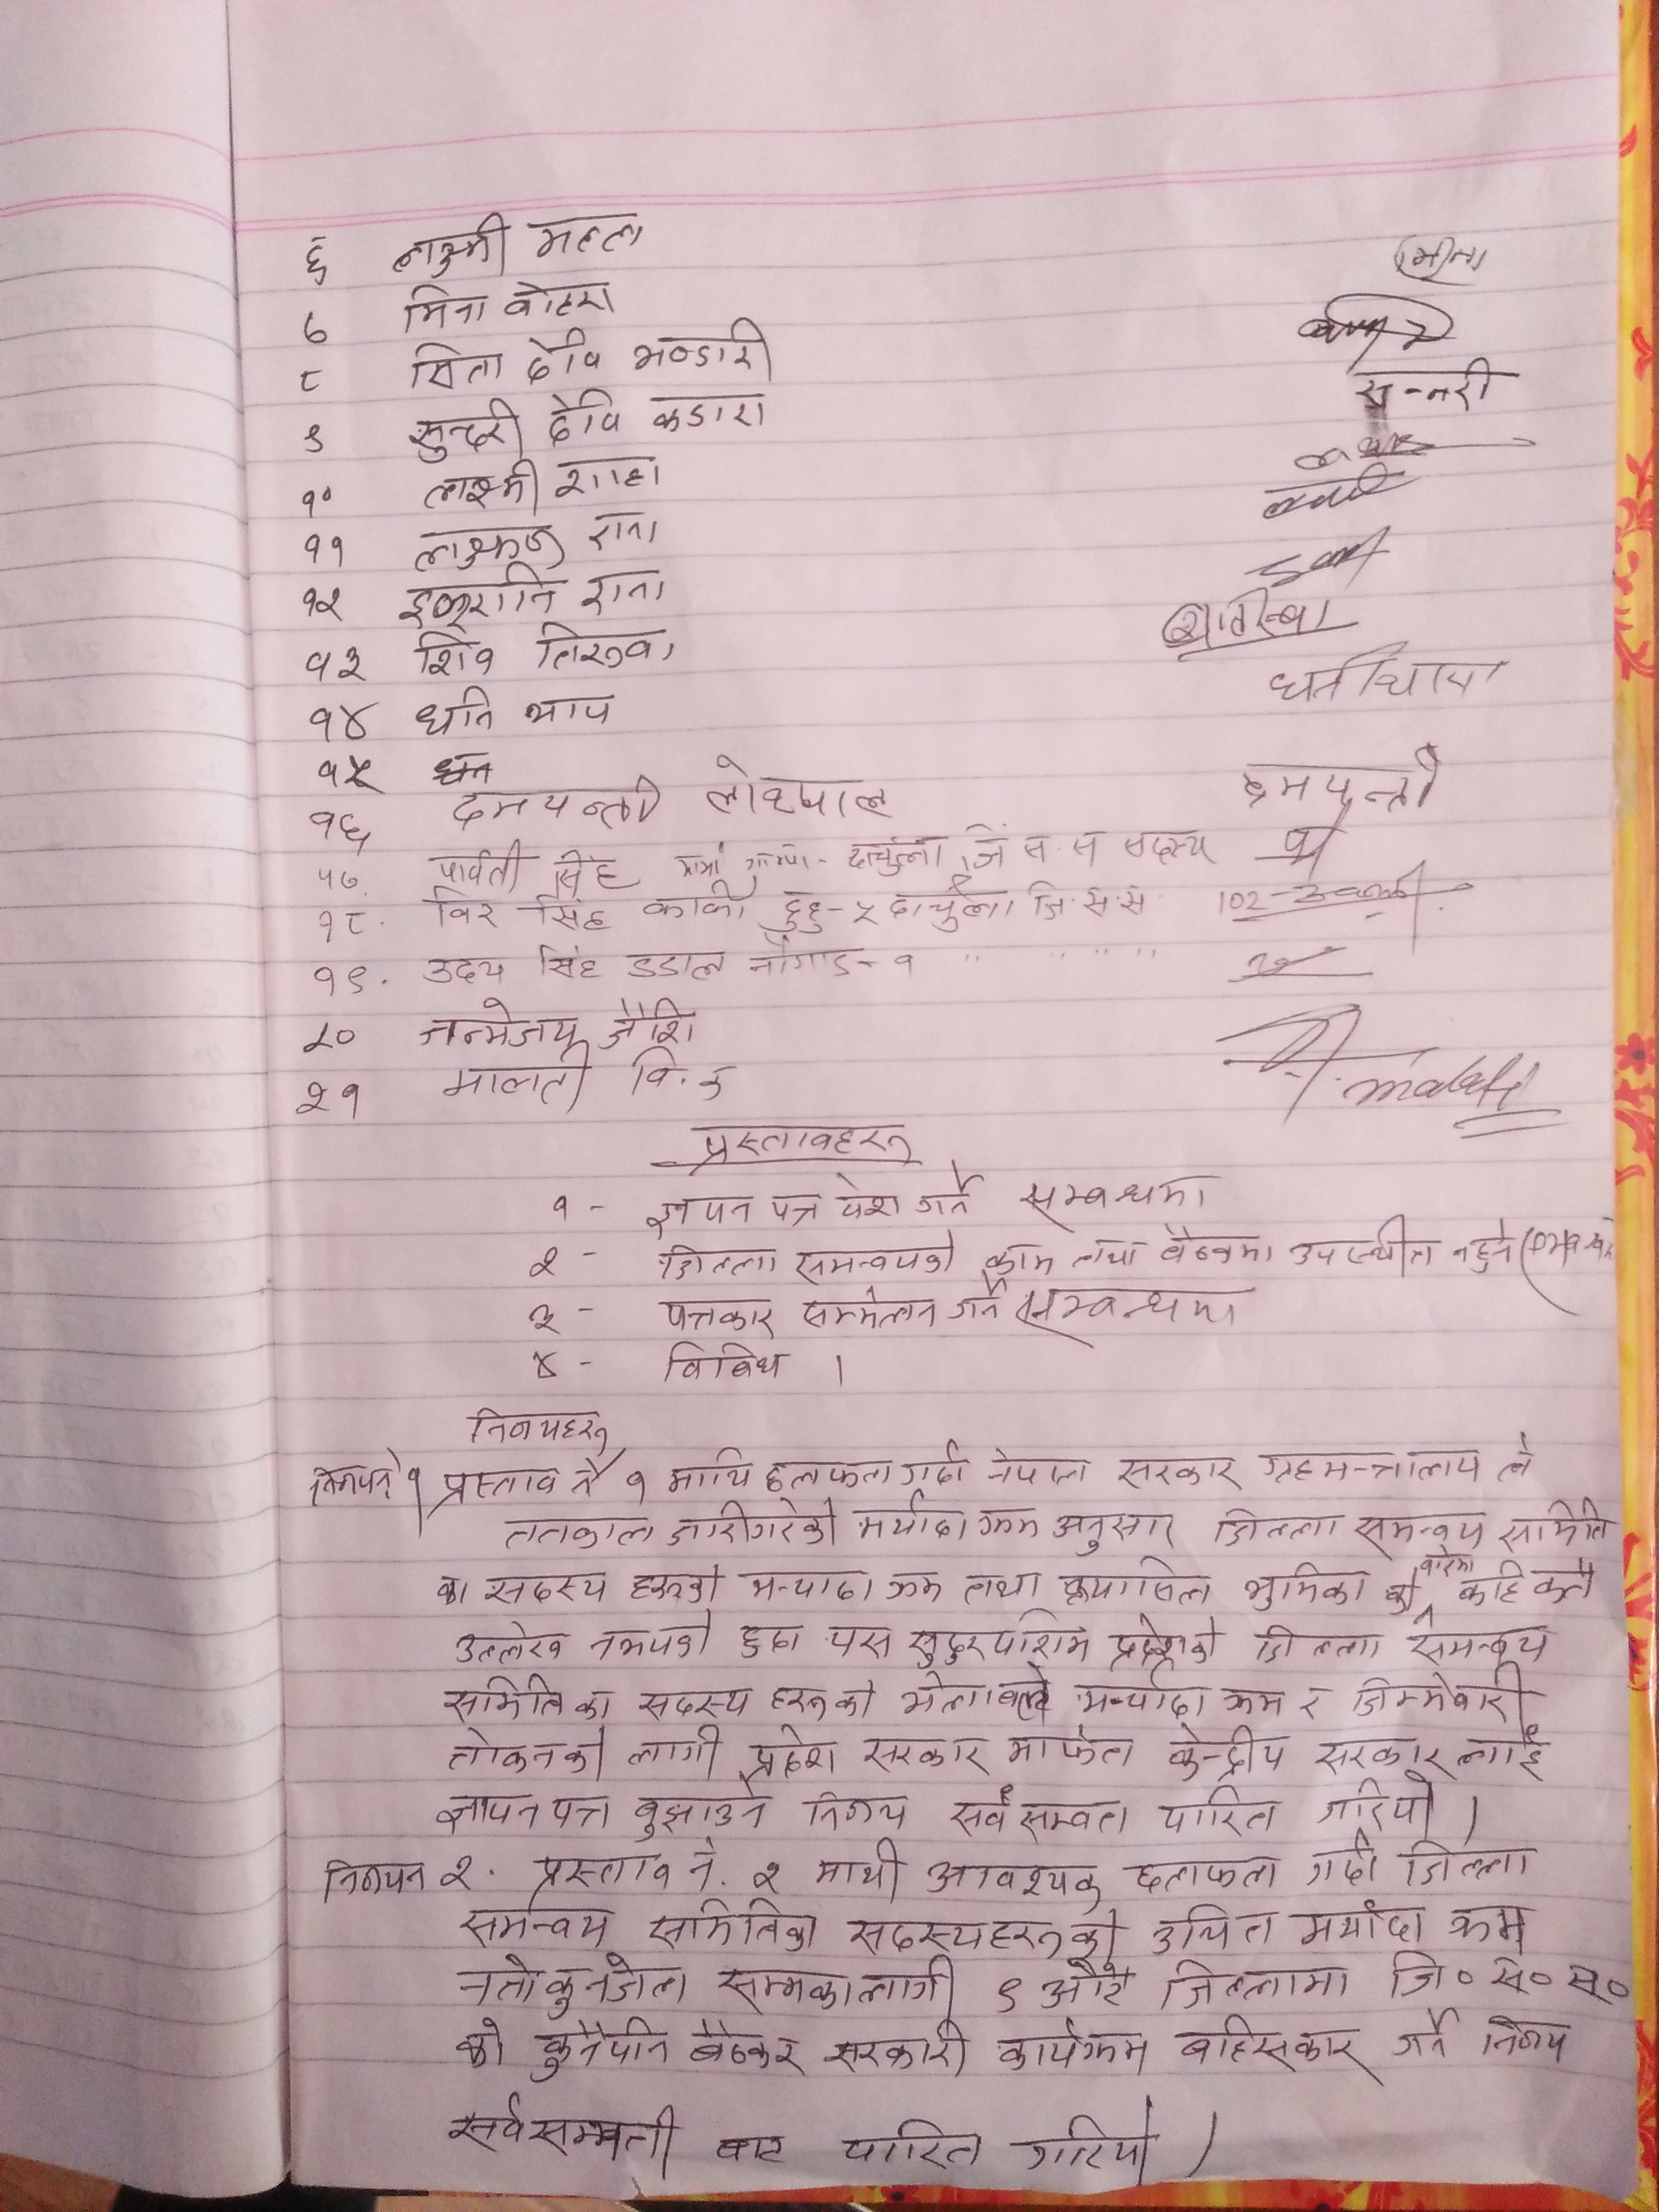 ६ लाक्ष्मी मल्ल
(मिना
७ मिना वोहरा
८ सिता देवि भण्डारी
सुन्तरी
९ सुन्दरी देवि कडारा
१० लाक्ष्मी शाहा
११ राना
१२ राना
१३ शिव तिरुवा
१४ धनि थापा
१५
१६ दमयन्ती लोथ्याल दमयन्ती
१७. पार्वती सिंह दार्चुला जि स स सदस्य
१८. विर सिंह कार्की दुहु-५ दार्चुला जि.स.स
१९. उदय सिंह डडाल नौगाड-१ " " " " "
२० जन्मेजय जैशि
२१ मालती वि.क malati
प्रस्तावहरु
१- ज्ञापन पत्र पेश गर्ने सम्बन्धमा
२- जिल्ला समन्वयको काम तथा बैठकमा उपस्थीत नहुने
३- पत्रकार सम्मेलन गर्ने सम्बन्धमा
४- विविध ।
निर्णयहरु
१ प्रस्ताव नं १ माथि छलफल गर्दा नेपाल सरकार गृहमन्त्रालय ले
ततकाल जारीगरेको मर्यादा क्रम अनुसार जिल्ला समन्वय समिति
का सदस्य हरुको मर्यादा क्रम तथा भुमिका को बारेमा कहि कतै
उल्लेख नभएको हुदा यस सुदुरपश्चिम प्रदेशको जिल्ला समन्वय
समितिका सदस्य हरुको भेलाबाट मर्यादा क्रम र जिम्मेवारी
तोकनको लागी प्रदेश सरकार मार्फत केन्द्रीय सरकार लाई
ज्ञापन पत्र बुझाउने निर्णय सर्वसम्वत पारित गरियो ।
२. प्रस्ताव नं. २ माथी आवश्यक छलफल गर्दा जिल्ला
समन्वय समितिका सदस्यहरुको उचित मर्यादा क्रम
नतोकुनजेल सम्मकालागी ९ औटै जिल्लामा जि० स० स०
को कुनैपनि बैठक र सरकारी कार्यक्रम बहिस्कार गर्ने निर्णय
सर्वसम्मती बाट पारित गरियो ।